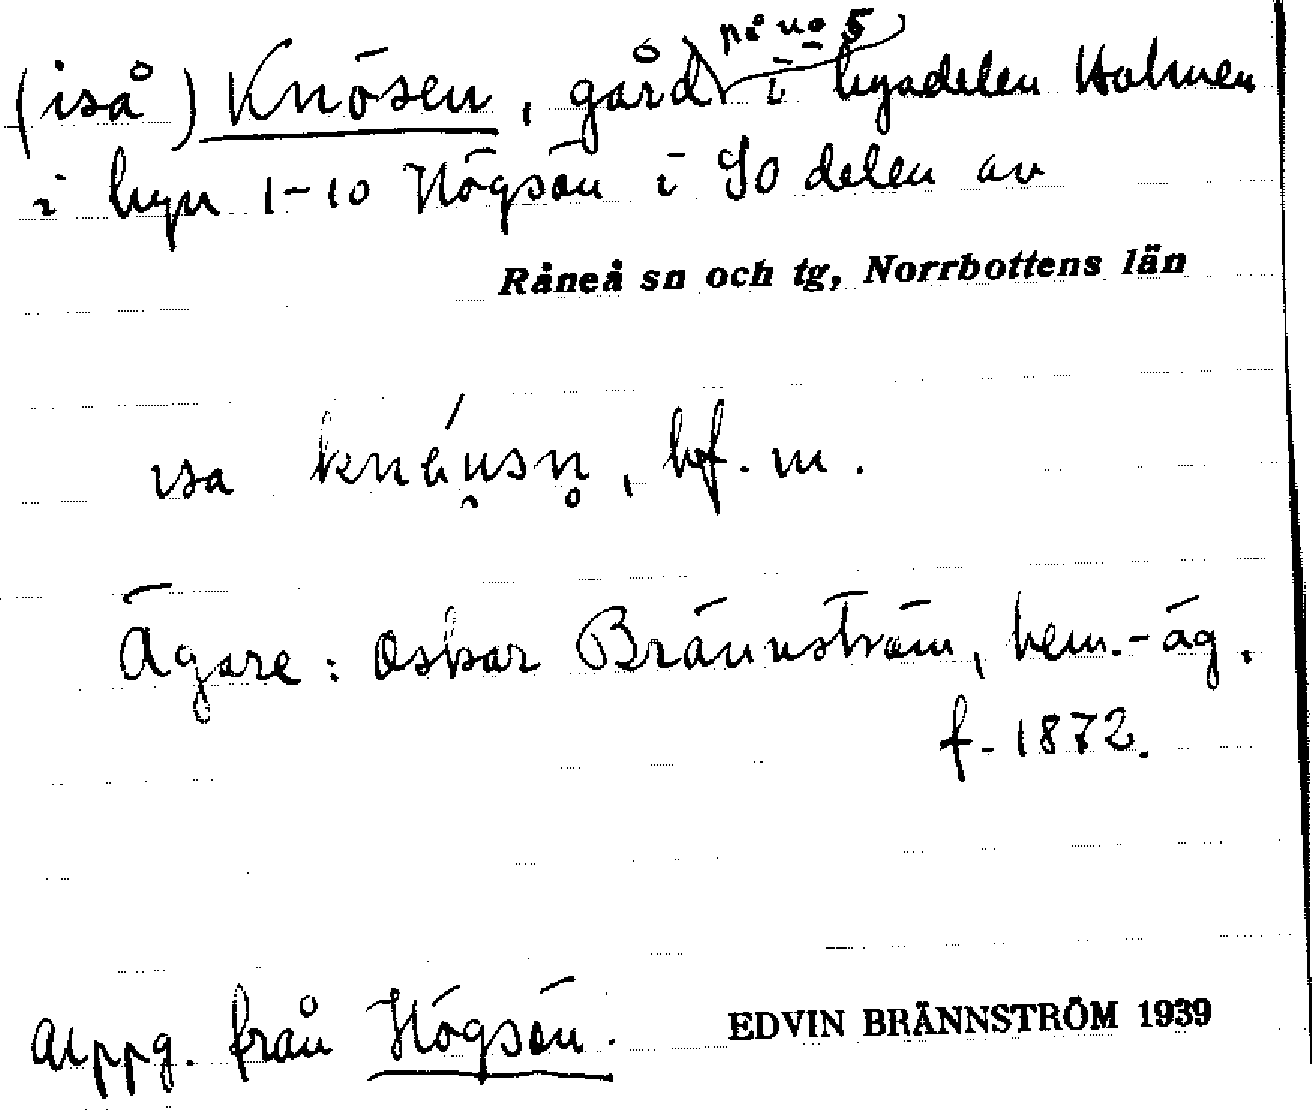 (iså) Knösen, gård på no 5 i bysdelen Holmen
i byn 1-10 Högsön i SO delen av
Råneå sn och tg, Norrbottens län
isa knéu̯sn̥, bf. m.
Ägare: Oskar Brännström, hem.-äg.
f. 1872.
Uppg. från Högsön.
EDVIN BRÄNNSTRÖM 1939